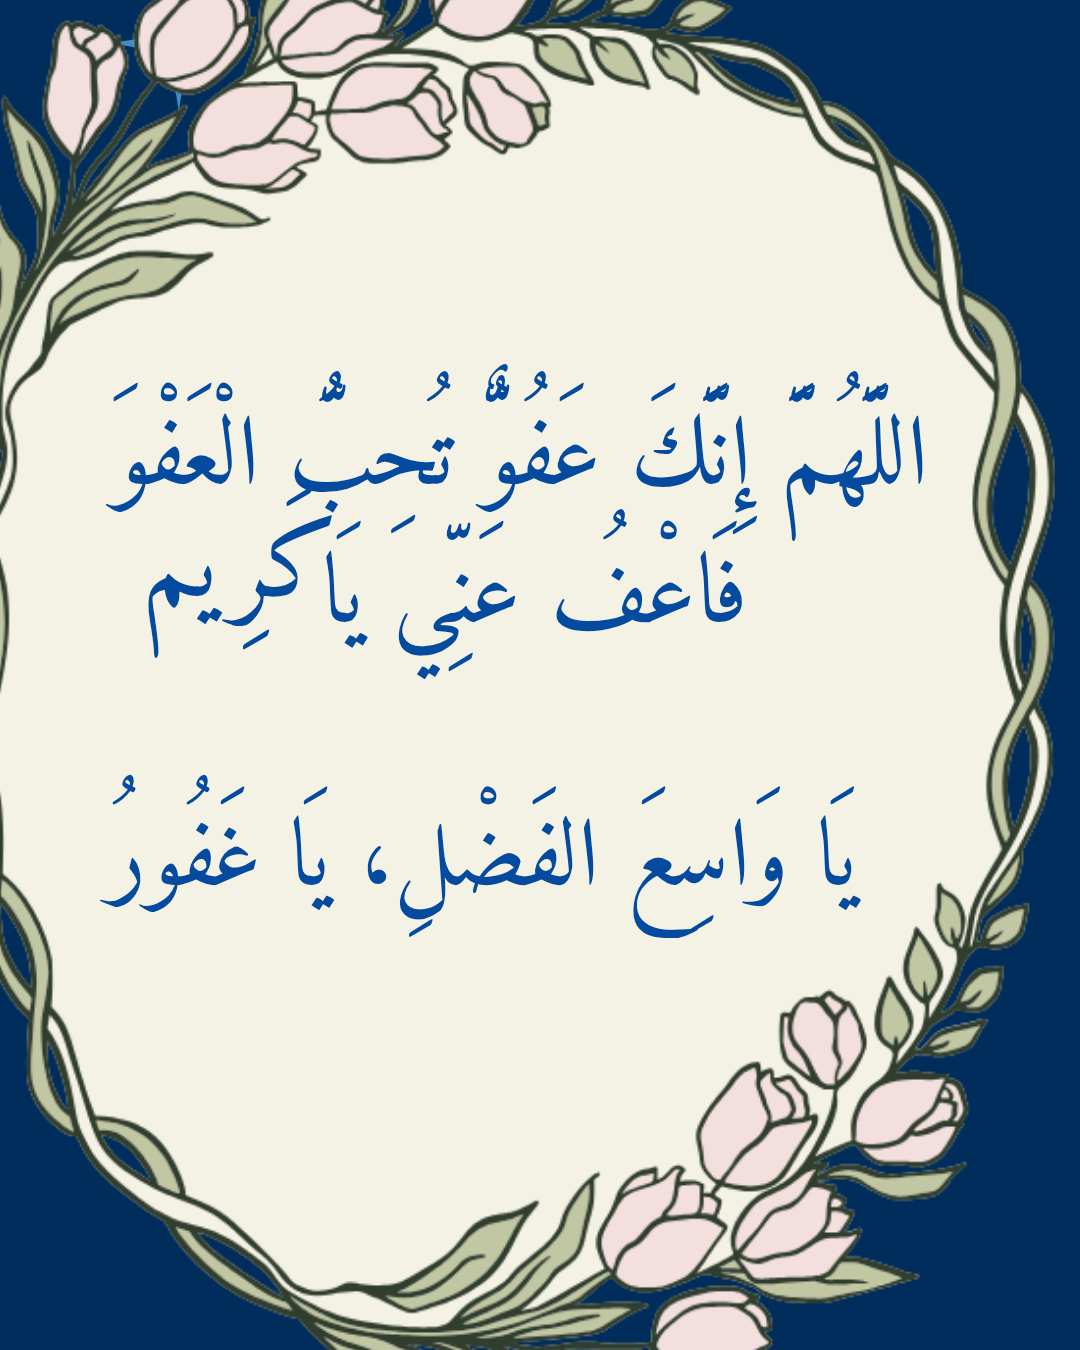 اللّهُمّ إِنّكَ عَفُوٌّ تُحِبُّ الْعَفْوَ
فَاعْفُ عَنِّيَ يَاكَرِيم
يَا وَاسِعَ الفَضْلِ، يَا غَفُورُ